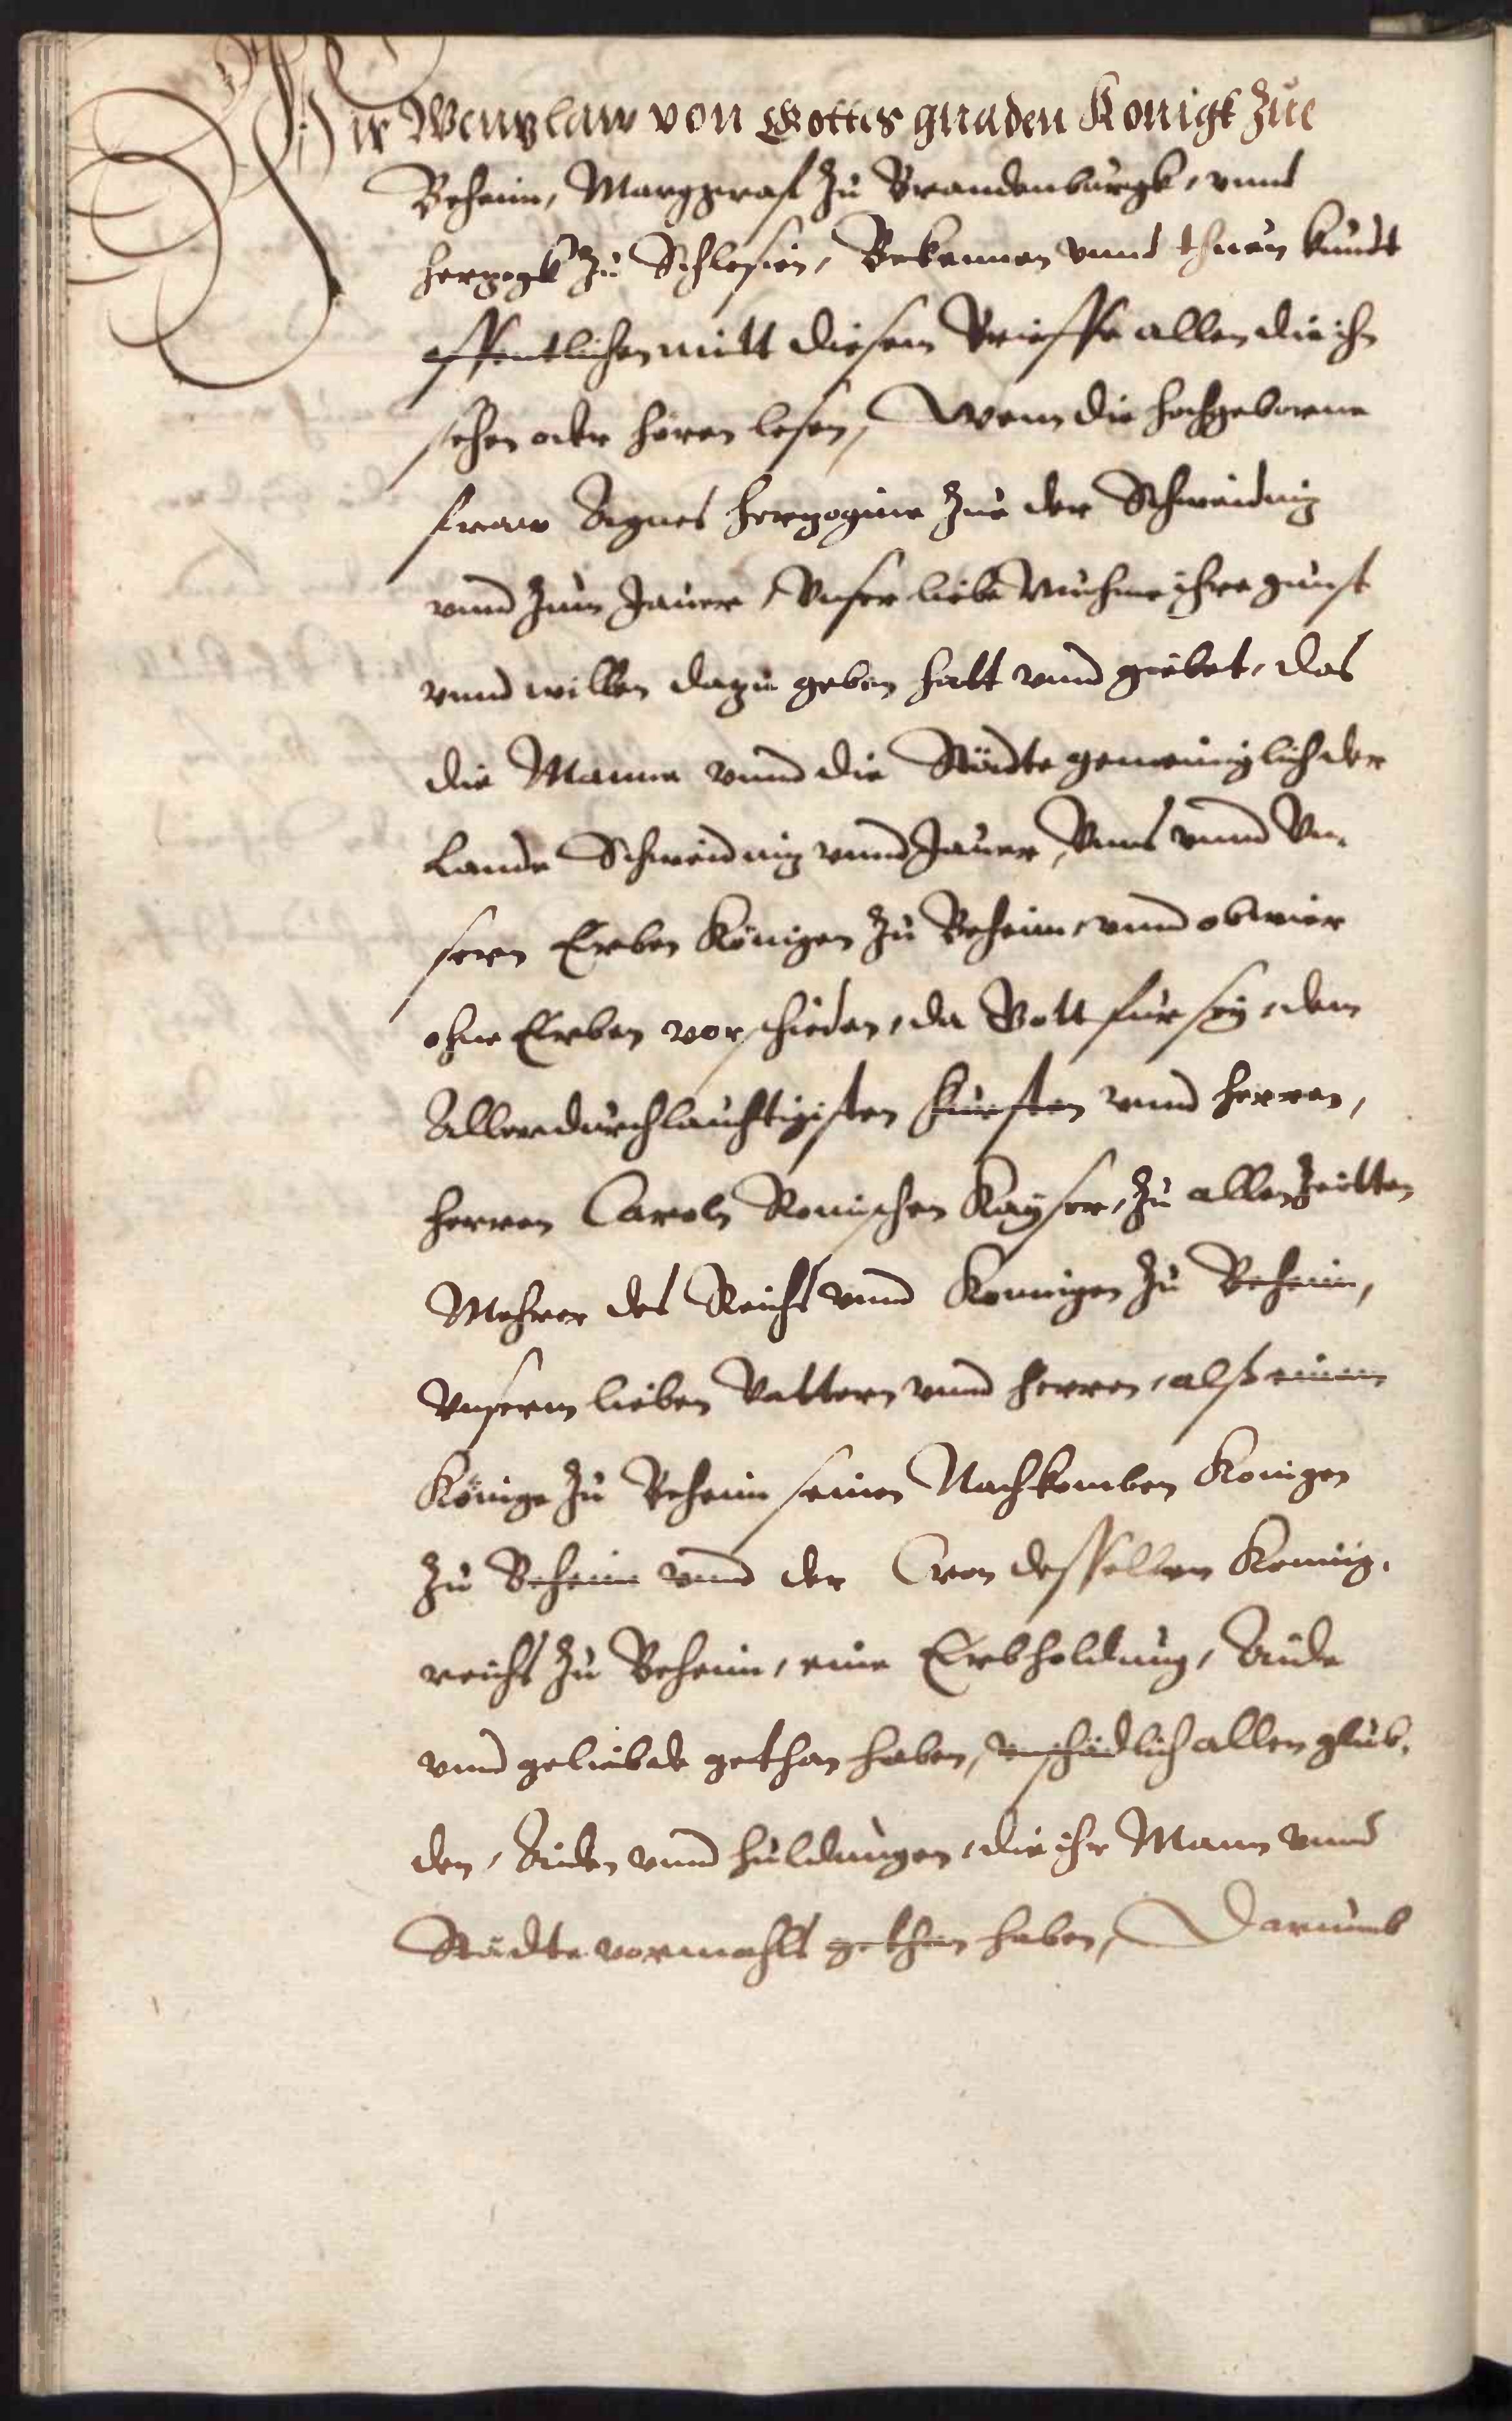 Wir Wenzlaw von Gottes gnaden Konigk Zue
Beheim, Marggraf Zu Brandenburgk, vnnd
Herzogk Zu Schlesien, Bekennen vnnd thuen kundt
offentlichen mitt diesem Brieffe allen die ihn
sehen oder hören lesen, Wenn die hochgeborne
fraw Agnes Herzogine Zue der Schweidniz
vnnd Zum Jauer, Vnser liebe Muhme ihre gunst
vnnd willen dazu geben hatt vnnd giebet, das
die Manne vnnd die Städte gemeiniglich der
Lande Schweidniz vnnd Jauer, Vnns vnnd Vn-
sern Erben Königen Zu Beheim, vnnd ob wier
ohne Erben vorschieden, da Gott für sey, dem
Allerdurchlauchtigisten fursten vnnd Herren,
Herren Caroln Romischen Kayser, Zu allen Zeitten
Mehrer des Reichs vnnd Konnigen Zu Beheim,
Vnserm lieben Vattern vnnd Herren, alß einem
Könige Zu Beheim seinen Nachkomben Konigen
Zu Beheim vnnd der Cron desselben Konnig-
reichs Zu Beheim, eine Erbholdung, Aide
vnnd geliebde gethan haben, vnschädlich allen glub-
den, Aiden vnnd Huldungen, die ihr Mann vnnd
Städte vormahls gethan haben, Darumb